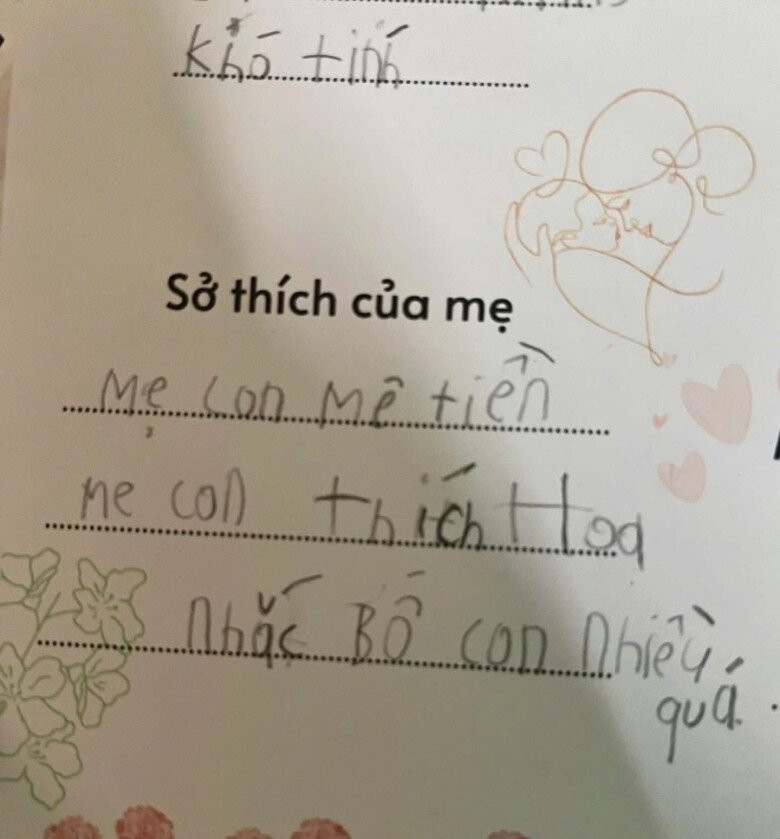 khó tính
Sở thích của mẹ
Mẹ con mê tiền
Mẹ con thích Hoa
Nhắc Bố con nhiều
quá.